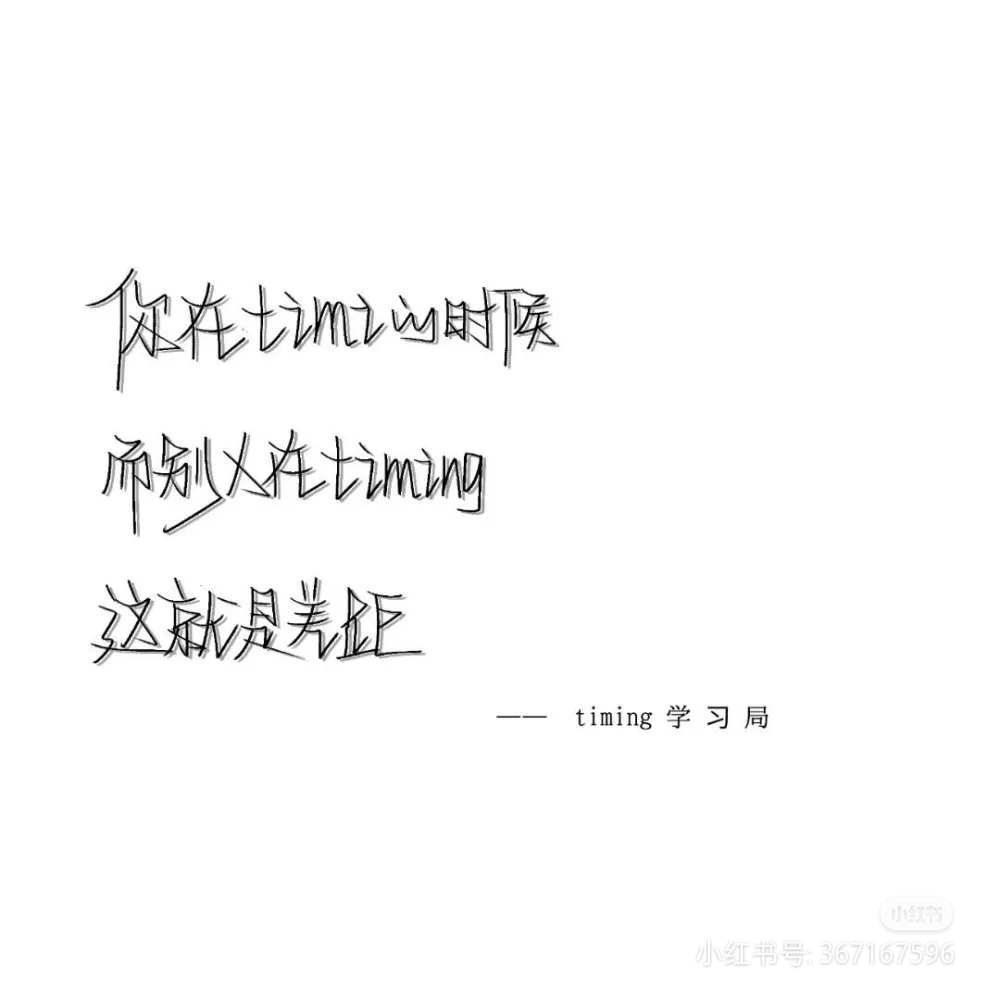 你在timi的时候
而别人在timing
这就是差距
—— timing 学习局
小红书
小红书号: 367167596